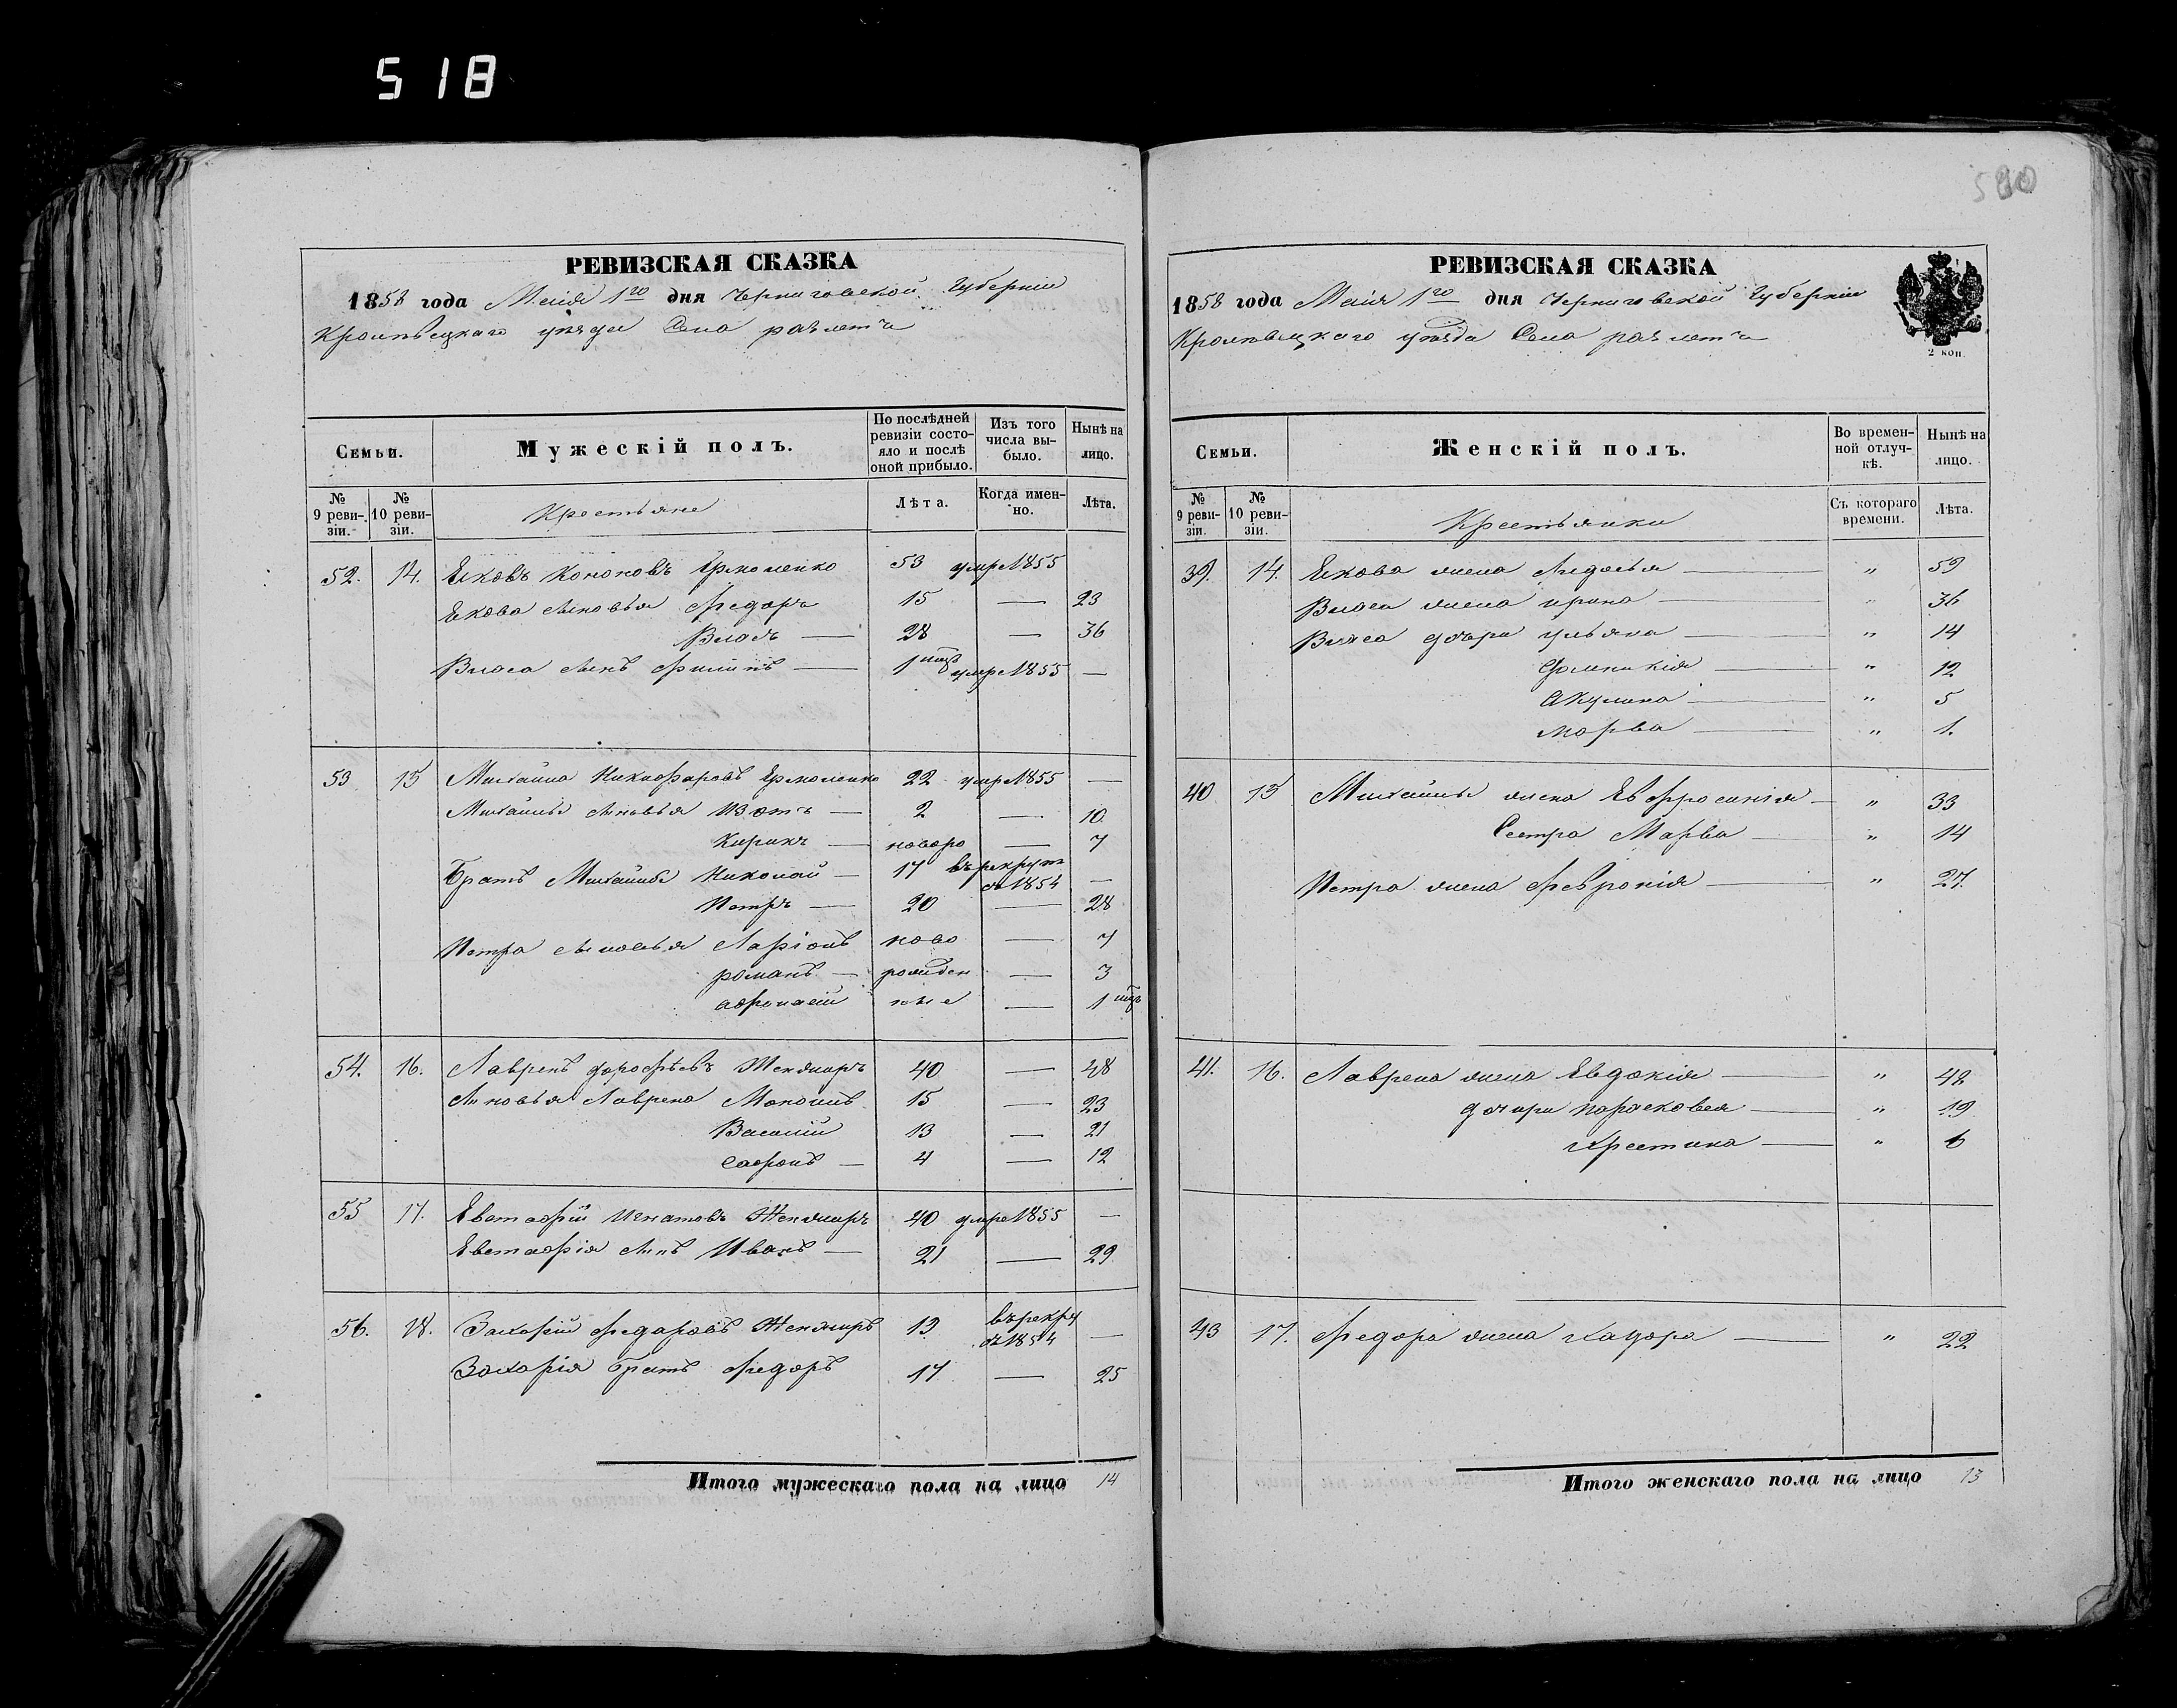 518
590
РЕВИЗСКАЯ СКАЗКА
1858 года Маія 1го дня Черниговской Губерніи
Кролевецкаго уезда Села
Семьи.
Мужескій полъ.
По послѣдней ревизіи состояло и послѣ оной прибыло.
Изъ того числа выбыло.
Нынѣ на лицо.
№ 9 ревизіи.
№ 10 ревизіи.
Крестьяне
Лѣта.
Когда именно.
Лѣта.
52. 14. Ековъ Кононовъ Ермоленко 53 умре 1855
Екова Сыновья Федоръ 15 — 23
Власъ — 28 — 36
Власа Сынъ Филипъ — 1 умре 1855 —
53 15 Михайла Никифаровъ Ермоленко 22 умре 1855 —
Михайлы Сыновья Изотъ — 2 — 10.
Кирикъ — новоро — 7
Братъ Михайлы Николай — 17 въ рекруты
въ 1854 —
Петръ — 20 — 28
Петра Сыновья Ларіонъ ново — 7
романъ — рожден — 3
афонасій ные — 1
54. 16. Лавренъ дорофѣевъ Женжиръ 40 — 48
Сыновья Лаврена Мокошъ 15 — 23
Василій 13 — 21
Сафонъ — 4 — 12
55 17. Евстафій Игнатовъ Женжиръ 40 умре 1855 —
Евстафія Сынъ Иванъ — 21 — 29.
56. 18. Захарій Федаровъ Женжиръ 19 въ рекру
въ 1854 —
Захарія Братъ Федоръ 17 — 25
Итого мужескаго пола на лицо 14
РЕВИЗСКАЯ СКАЗКА
1858 года Маія 1го дня Черниговской Губерніи
Кролевецкаго уезда Села
2 коп.
Семьи.
Женскій полъ.
Во временной отлучкѣ.
Нынѣ на лицо.
№ 9 ревизіи.
№ 10 ревизіи.
Крестьянки
Съ котораго времени.
Лѣта.
39. 14. Екова жена Федосья — " 59
Власа жена ирина — " 36
Власа дочери ульяна — " 14
Домникія — " 12
Акулина — " 5
Марва — " 1.
40 15 Михайлы жена Евфросинія — " 33
Сестра Марва — " 14
Петра жена Февронія — " 27.
41. 16. Лаврена жена Евдокія — " 42
дочери парасковея — " 19
Христина — " 6
43 17. Федора жена — " 22
Итого женскаго пола на лицо 13